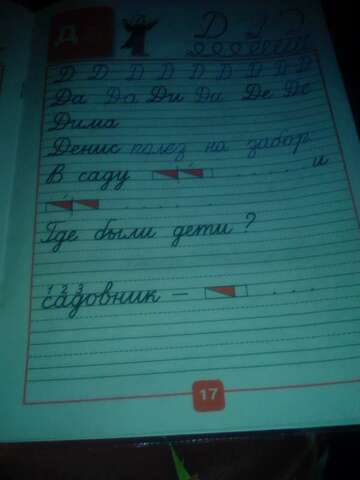 Д
Д Д Д
Д Д Д Д Д Д Д Д
Да Да Ди Ди Де Де
Дима
Денис полез на забор
В саду . . . . . . . и
. . . . .
Где были дети ?
1 2 3
садовник — . . .
17